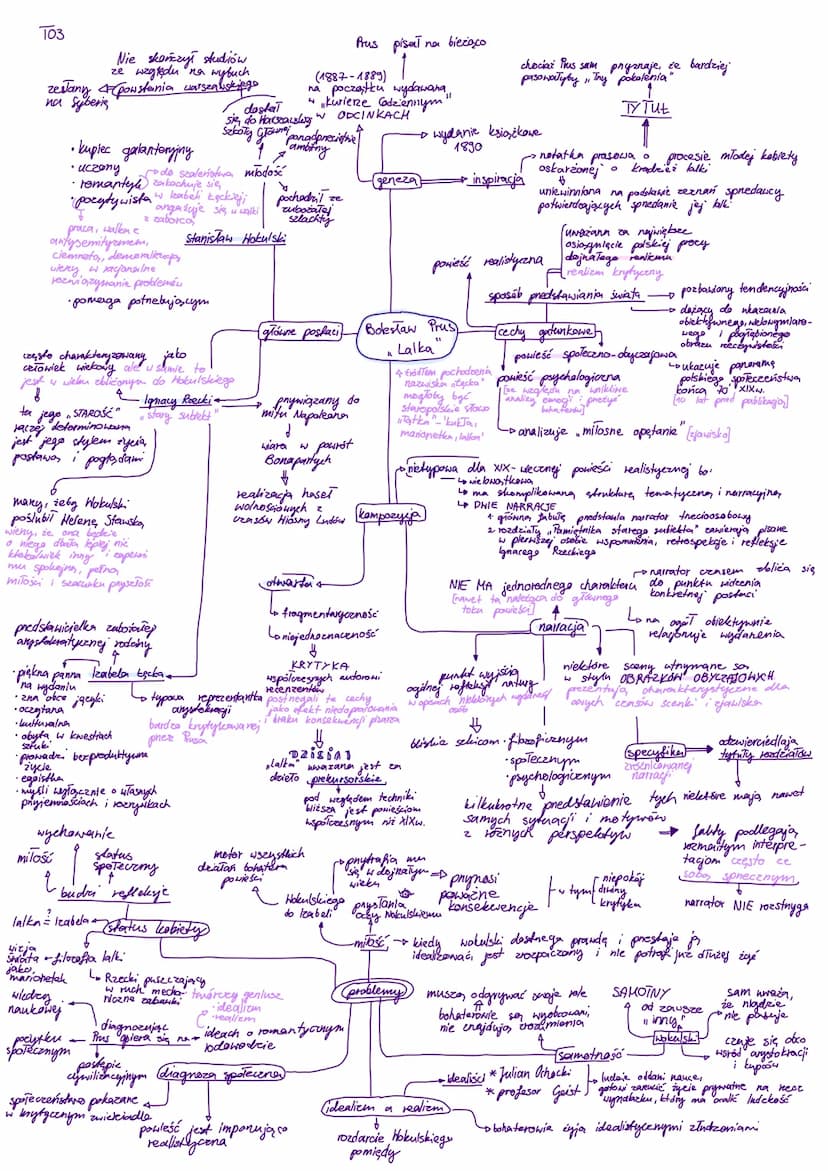 T03
Prus pisał na bieżąco
(1887-1889)
na początku wydawana
w "Kurierze Codziennym"
w ODCINKACH
wydanie książkowe
1890
geneza
inspiracja
notatka prasowa o procesie młodej kobiety
oskarżonej o kradzież lalki
uniewinniona na podstawie zeznań sprzedawcy
potwierdzających sprzedanie jej lalki
TYTUŁ
chociaż Prus sam przyznaje, że bardziej
pasowałyby "Trzy pokolenia"
Nie skończył studiów
ze względu na wybuch
powstania warszawskiego
zesłany
na Syberię
dostał
się do Warszawskiej
Szkoły Głównej
ponadprzeciętnie
ambitny
młodość
pochodził ze
zubożałej
szlachty
• kupiec galanteryjny
• uczony
• romantyk
• pozytywista
do szaleństwa
zakochuje się
w Izabeli Łęckiej,
angażuje się w walki
z zaborcą
praca, walka z
antysemityzmem,
ciemnotą, demoralizacją,
wierzy w racjonalne
rozwiązywanie problemów
• pomaga potrzebującym
Stanisław Wokulski
główne postaci
Bolesław Prus
"Lalka"
źródłem pochodzenia
nazwiska "Łęcka"
mogłoby być
staropolskie słowo
"łątka" - "kukła,
marionetka, lalka"
cechy gatunkowe
powieść realistyczna
uważana za największe
osiągnięcie polskiej prozy
dojrzałego realizmu
realizm krytyczny
sposób przedstawiania świata
pozbawiony tendencyjności
dążący do ukazania
obiektywnego, wielowymiaro-
wego i pogłębionego
obrazu rzeczywistości
powieść społeczno-obyczajowa
ukazuje panoramę
polskiego społeczeństwa
końca 70' XIXw.
[10 lat przed publikacją]
powieść psychologiczna
[ze względu na wnikliwe
analizy emocji i przeżyć
bohaterów]
analizuje "miłosne opętanie" [zjawisko]
często charakteryzowany jako
człowiek wiekowy ale w sumie to
jest w wieku zbliżonym do Wokulskiego
Ignacy Rzecki
"stary subiekt"
ta jego "STAROŚĆ"
raczej determinowana
jest jego stylem życia,
postawą i poglądami
przywiązany do
mitu Napoleona
wiara w powrót
Bonapartych
realizacja haseł
wolnościowych z
czasów Wiosny Ludów
marzy, żeby Wokulski
poślubił Helenę Stawską,
wierzy, że ona będzie
o niego dbała lepiej niż
ktokolwiek inny i zapewni
mu spokojną, pełną
miłości i szacunku przyszłość
kompozycja
nietypowa dla XIX-wiecznej powieści realistycznej bo:
wielowątkowa
ma skomplikowaną strukturę tematyczną i narracyjną
DWIE NARRACJE
1 główną fabułę przedstawia narrator trzecioosobowy
2 rozdziały "Pamiętnika starego subiekta" zawierają pisane
w pierwszej osobie wspomnienia, retrospekcje i refleksje
Ignacego Rzeckiego
otwarta
fragmentaryczność
niejednoznaczność
KRYTYKA
współczesnych autorowi
recenzentów
postrzegali te cechy
jako efekt niedopracowania
i braku konsekwencji pisarza
DZISIAJ
"Lalka" uważana jest za
dzieło prekursorskie,
pod względem techniki
bliższa jest powieściom
współczesnym niż XIXw.
narracja
NIE MA jednorodnego charakteru
[nawet ta należąca do głównego
toku powieści]
narrator czasem zbliża się
do punktu widzenia
konkretnej postaci
na ogół obiektywnie
relacjonuje wydarzenia
punkt wyjścia
ogólnej refleksji natury
w opiniach niektórych wydarzeń
osób
bliskie szkicom • filozoficznym
• społecznym
• psychologicznym
niektóre sceny utrzymane są
w stylu OBRAZKÓW OBYCZAJOWYCH
prezentują charakterystyczne dla
owych czasów scenki i zjawiska
specyfika
zróżnicowanej
narracji
odzwierciedlają
tytuły rozdziałów
kilkukrotne przedstawienie tych
samych sytuacji i motywów
z różnych perspektyw
niektóre mają nawet
fakty podlegają
rozmaitym interpre-
tacjom często ze
sobą sprzecznym
narrator NIE rozstrzyga
przedstawicielka zubożałej
arystokratycznej rodziny
Izabela Łęcka
• piękna panna
na wydaniu
• zna obce języki
• oczytana
• kulturalna
• obyta w kwestiach
sztuki
• prowadzi bezproduktywne
życie
• egoistka
• myśli wyłącznie o własnych
przyjemnościach i rozrywkach
typowa reprezentantka
arystokracji
bardzo krytykowanej
przez Prusa
problemy
wychowanie
miłość
status
społeczny
budzi refleksje
status kobiety
lalka ≟ Izabela
wizja
świata
jako
marionetek
filozofia lalki
Rzecki puszczający
w ruch mecha-
niczne zabawki
motor wszystkich
działań bohatera
powieści
Wokulskiego
do Izabeli
przytrafia mu
się w dojrzałym
wieku
przysłania
oczy Wokulskiemu
przynosi
poważne
konsekwencje
w tym
niepokój
drwiny
krytyka
miłość
kiedy wokulski dostrzega prawdę i przestaje ją
idealizować, jest zrozpaczony i nie potrafi już dłużej żyć
diagnoza społeczna
diagnozując
Prus opiera się na ideach o romantycznym
rodowodzie
twórczy geniusz
• idealizm
• realizm
wiedzy
naukowej
pożytku
społecznym
postępie
cywilizacyjnym
społeczeństwo pokazane
w krytycznym zwierciadle
powieść jest imponująco
realistyczna
samotność
muszą odgrywać swoje role
bohaterowie są wyobcowani,
nie znajdują zrozumienia
wokulski
SAMOTNY
od zawsze
"inny"
sam uważa,
że nigdzie
nie pasuje
czuje się obco
wśród arystokracji
i kupców
idealizm a realizm
idealiści * Julian Ochocki
* profesor Geist
ludzie oddani nauce,
gotowi zarzucić życie prywatne na rzecz
wynalazku, który ma ocalić ludzkość
bohaterowie żyją idealistycznymi złudzeniami
rozdarcie Wokulskiego
pomiędzy